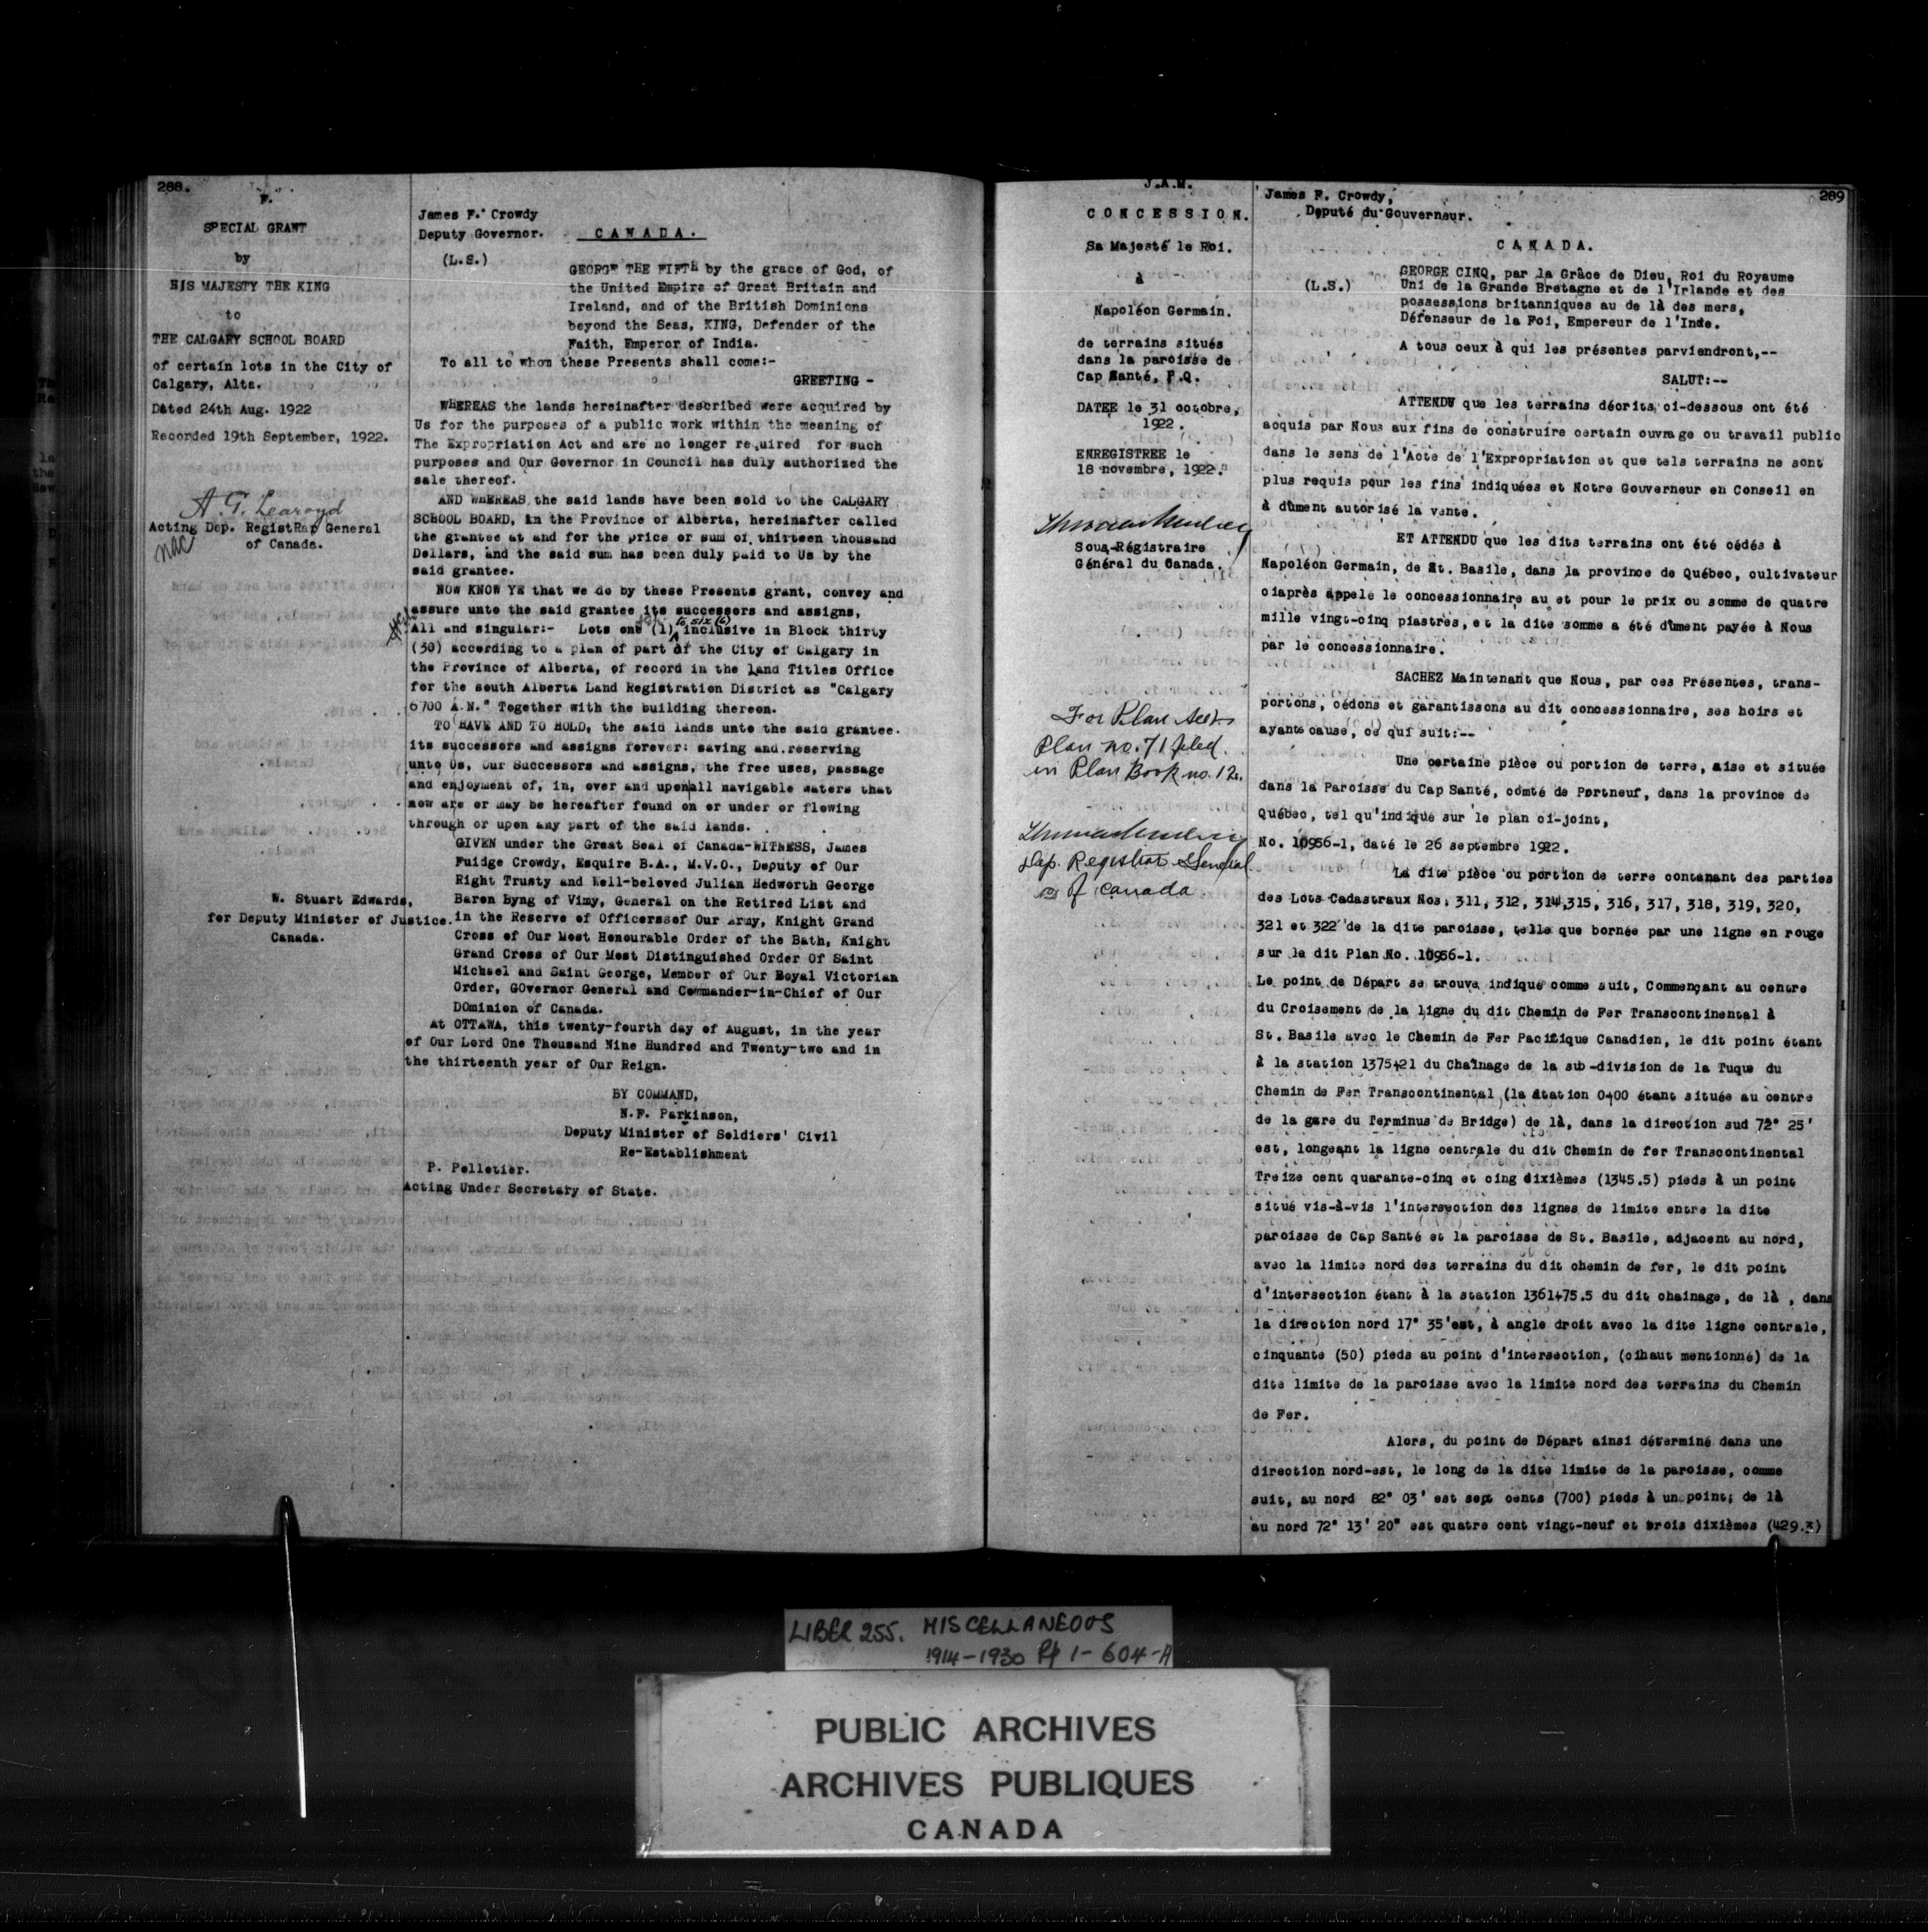 288.
F.
SPECIAL GRANT
by
HIS MAJESTY THE KING
to
THE CALGARY SCHOOL BOARD
of certain lots in the City of
Calgary, Alta.
Dated 24th Aug. 1922
Recorded 19th September, 1922.
A. G. Learoyd
Acting Dep. RegistRar General
of Canada.
W. Stuart Edwards,
for Deputy Minister of Justice.
Canada.
James F. Crowdy
Deputy Governor.
CANADA.
(L.S.)
GEORGE THE FIFTH by the grace of God, of
the United Empire of Great Britain and
Ireland, and of the British Dominions
beyond the Seas, KING, Defender of the
Faith, Emperor of India.
To all to whom these Presents shall come:-
GREETING -
WHEREAS the lands hereinafter described were acquired by
Us for the purposes of a public work within the meaning of
The Expropriation Act and are no longer required for such
purposes and Our Governor in Council has duly authorized the
sale thereof.
AND WHEREAS the said lands have been sold to the CALGARY
SCHOOL BOARD, in the Province of Alberta, hereinafter called
the grantee at and for the price or sum of thirteen thousand
Dollars, and the said sum has been duly paid to Us by the
said grantee.
NOW KNOW YE that we do by these Presents grant, convey and
assure unto the said grantee its successors and assigns,
All and singular:- Lots one (1) to six (6) inclusive in Block thirty
(30) according to a plan of part of the City of Calgary in
the Province of Alberta, of record in the Land Titles Office
for the south Alberta Land Registration District as "Calgary
6700 A.N." Together with the building thereon.
TO HAVE AND TO HOLD, the said lands unto the said grantee.
its successors and assigns forever: saving and reserving
unto Us, Our Successors and assigns, the free uses, passage
and enjoyment of, in, over and upon all navigable waters that
now are or may be hereafter found on or under or flowing
through or upon any part of the said lands.
GIVEN under the Great Seal of Canada-WITNESS, James
Fuidge Crowdy, Esquire B.A., M.V.O., Deputy of Our
Right Trusty and Well-beloved Julian Hedworth George
Baron Byng of Vimy, General on the Retired List and
in the Reserve of Officerssof Our Army, Knight Grand
Cross of Our Most Honourable Order of the Bath, Knight
Grand Cross of Our Most Distinguished Order Of Saint
Michael and Saint George, Member of Our Royal Victorian
Order, GOvernor General and Commander-in-Chief of Our
DOminion of Canada.
At OTTAWA, this twenty-fourth day of August, in the year
of Our Lord One Thousand Nine Hundred and Twenty-two and in
the thirteenth year of Our Reign.
BY COMMAND,
N.F. Parkinson,
Deputy Minister of Soldiers' Civil
Re-Establishment
P. Pelletier.
Acting Under Secretary of State.
J.A.M.
CONCESSION.
Sa Majesté le Roi.
à
Napoléon Germain.
de terrains situés
dans la paroisse de
Cap Santé, P.Q.
DATEE le 31 octobre,
1922.
ENREGISTREE le
18 novembre, 1922.
Sous-Régistraire
Général du Canada.
For Plan see
Plan no. 71 filed
in Plan Book no. 12.
Dep. Registrar General
of Canada
289
James F. Crowdy,
Deputé du Gouverneur.
CANADA.
(L.S.)
GEORGE CINQ, par la Grâce de Dieu, Roi du Royaume
Uni de la Grande Bretagne et de l'Irlande et des
possessions britanniques au de là des mers,
Défenseur de la Foi, Empereur de l'Inde.
A tous ceux à qui les présentes parviendront,--
SALUT:--
ATTENDU que les terrains décrits ci-dessous ont été
acquis par Nous aux fins de construire certain ouvrage ou travail public
dans le sens de l'Acte de l'Expropriation et que tels terrains ne sont
plus requis pour les fins indiquées et Notre Gouverneur en Conseil en
à dûment autorisé la vente.
ET ATTENDU que les dits terrains ont été cédés à
Napoléon Germain, de St. Basile, dans la province de Québec, cultivateur
ciaprès appelé le concessionnaire au et pour le prix ou somme de quatre
mille vingt-cinq piastres, et la dite somme a été dûment payée à Nous
par le concessionnaire.
SACHEZ Maintenant que Nous, par ces Présentes, trans-
portons, cédons et garantissons au dit concessionnaire, ses hoirs et
ayants cause, ce qui suit:--
Une certaine pièce ou portion de terre, sise et située
dans la Paroisse du Cap Santé, comté de Portneuf, dans la province de
Québec, tel qu'indiqué sur le plan ci-joint,
No. 10956-1, daté le 26 septembre 1922.
La dite pièce ou portion de terre contenant des parties
des Lots Cadastraux Nos. 311, 312, 314,315, 316, 317, 318, 319, 320,
321 et 322 de la dite paroisse, telle que bornée par une ligne en rouge
sur le dit Plan No. 10956-1.
Le point de Départ se trouve indiqué comme suit, Commençant au centre
du Croisement de la ligne du dit Chemin de Fer Transcontinental à
St. Basile avec le Chemin de Fer Pacifique Canadien, le dit point étant
à la station 1375+21 du Chaînage de la sub-division de la Tuque du
Chemin de Fer Transcontinental (la station 0+00 étant située au centre
de la gare du Terminus de Bridge) de là, dans la direction sud 72° 25'
est, longeant la ligne centrale du dit Chemin de fer Transcontinental
Treize cent quarante-cinq et cinq dixièmes (1345.5) pieds à un point
situé vis-à-vis l'intersection des lignes de limite entre la dite
paroisse de Cap Santé et la paroisse de St. Basile, adjacent au nord,
avec la limite nord des terrains du dit chemin de fer, le dit point
d'intersection étant à la station 1361+75.5 du dit chainage, de là , dans
la direction nord 17° 35'est, à angle droit avec la dite ligne centrale,
cinquante (50) pieds au point d'intersection, (cihaut mentionné) de la
dite limite de la paroisse avec la limite nord des terrains du Chemin
de Fer.
Alors, du point de Départ ainsi déterminé dans une
direction nord-est, le long de la dite limite de la paroisse, comme
suit, au nord 82° 03' est sept cents (700) pieds à un point; de là
au nord 72° 13' 20" est quatre cent vingt-neuf et trois dixièmes (429.3)
LIBER 255. MISCELLANEOUS
1914-1930 Pp 1-604-A
PUBLIC ARCHIVES
ARCHIVES PUBLIQUES
CANADA